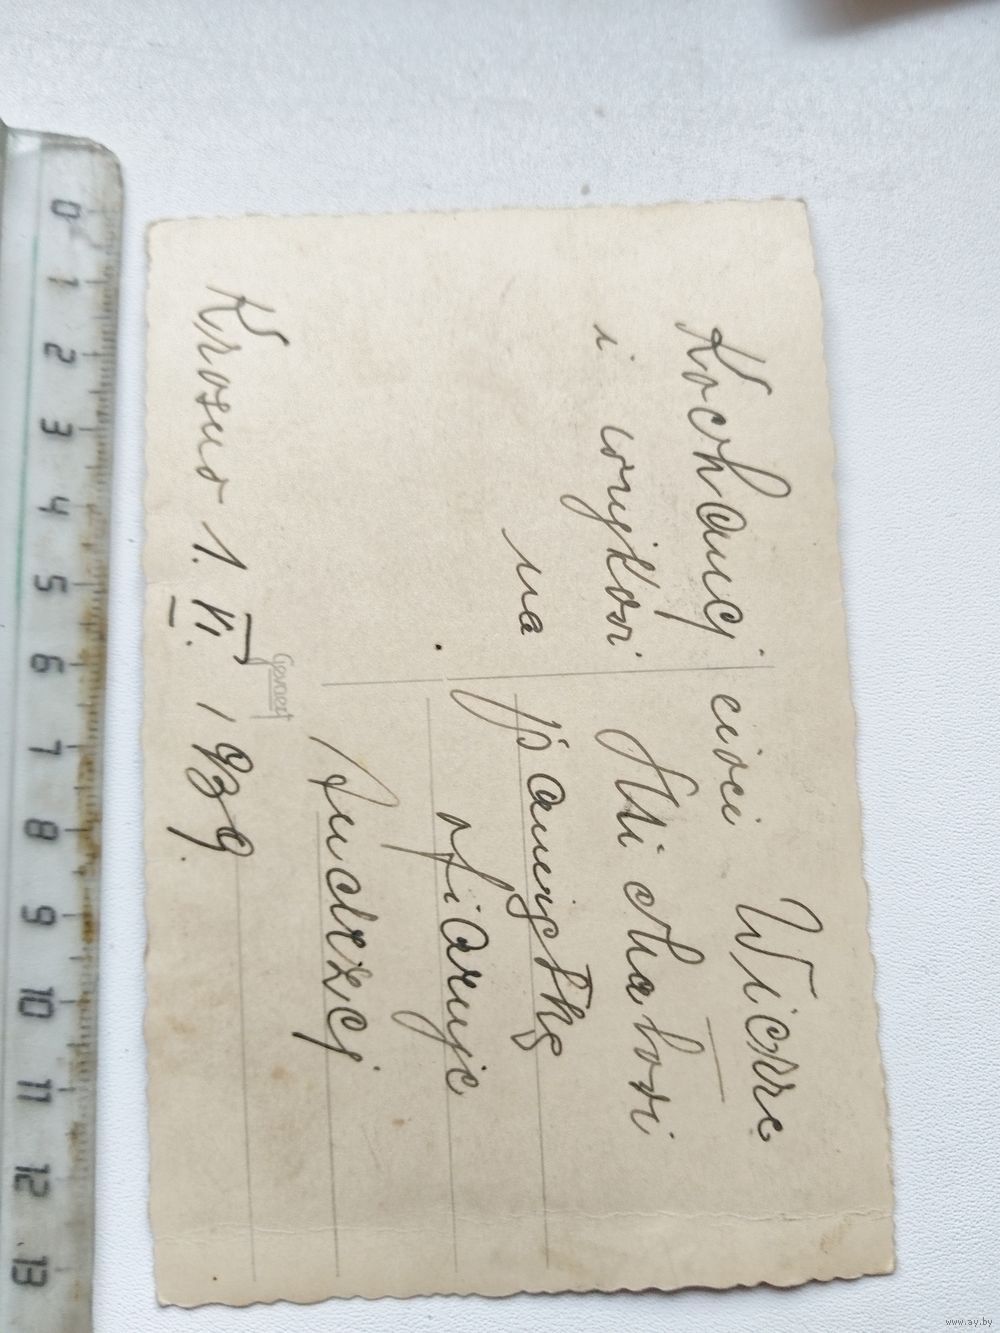 Kochanej cioci Wiorze
i wujkowi Michałowi
na pamiątkę
ofiaruje
Andrzej
Krosno 1. VI. 1939.
Gevaert
0 1 2 3 4 5 6 7 8 9 10 11 12 13
www.ay.by